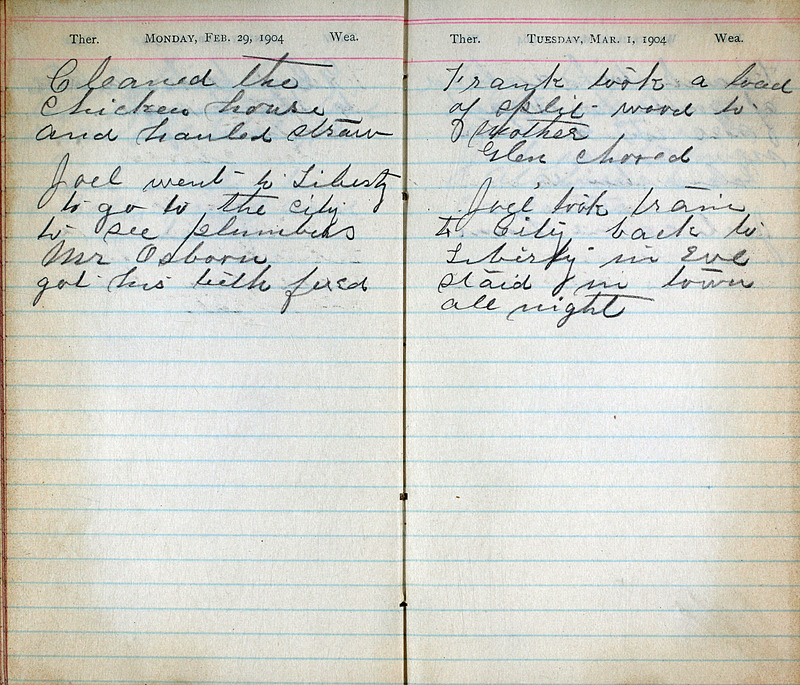 Ther. MONDAY, FEB. 29, 1904 Wea.
Cleaned the
chicken house
and hauled straw
Joel went to Liberty
to go to the city
to see plumbers
Mr Osborn
got his teeth fixed
Ther. TUESDAY, MAR. 1, 1904 Wea.
Frank took a load
of split wood to
Mother
Glen chored
Joel took train
to City back to
Liberty in Eve
staid in town
all night